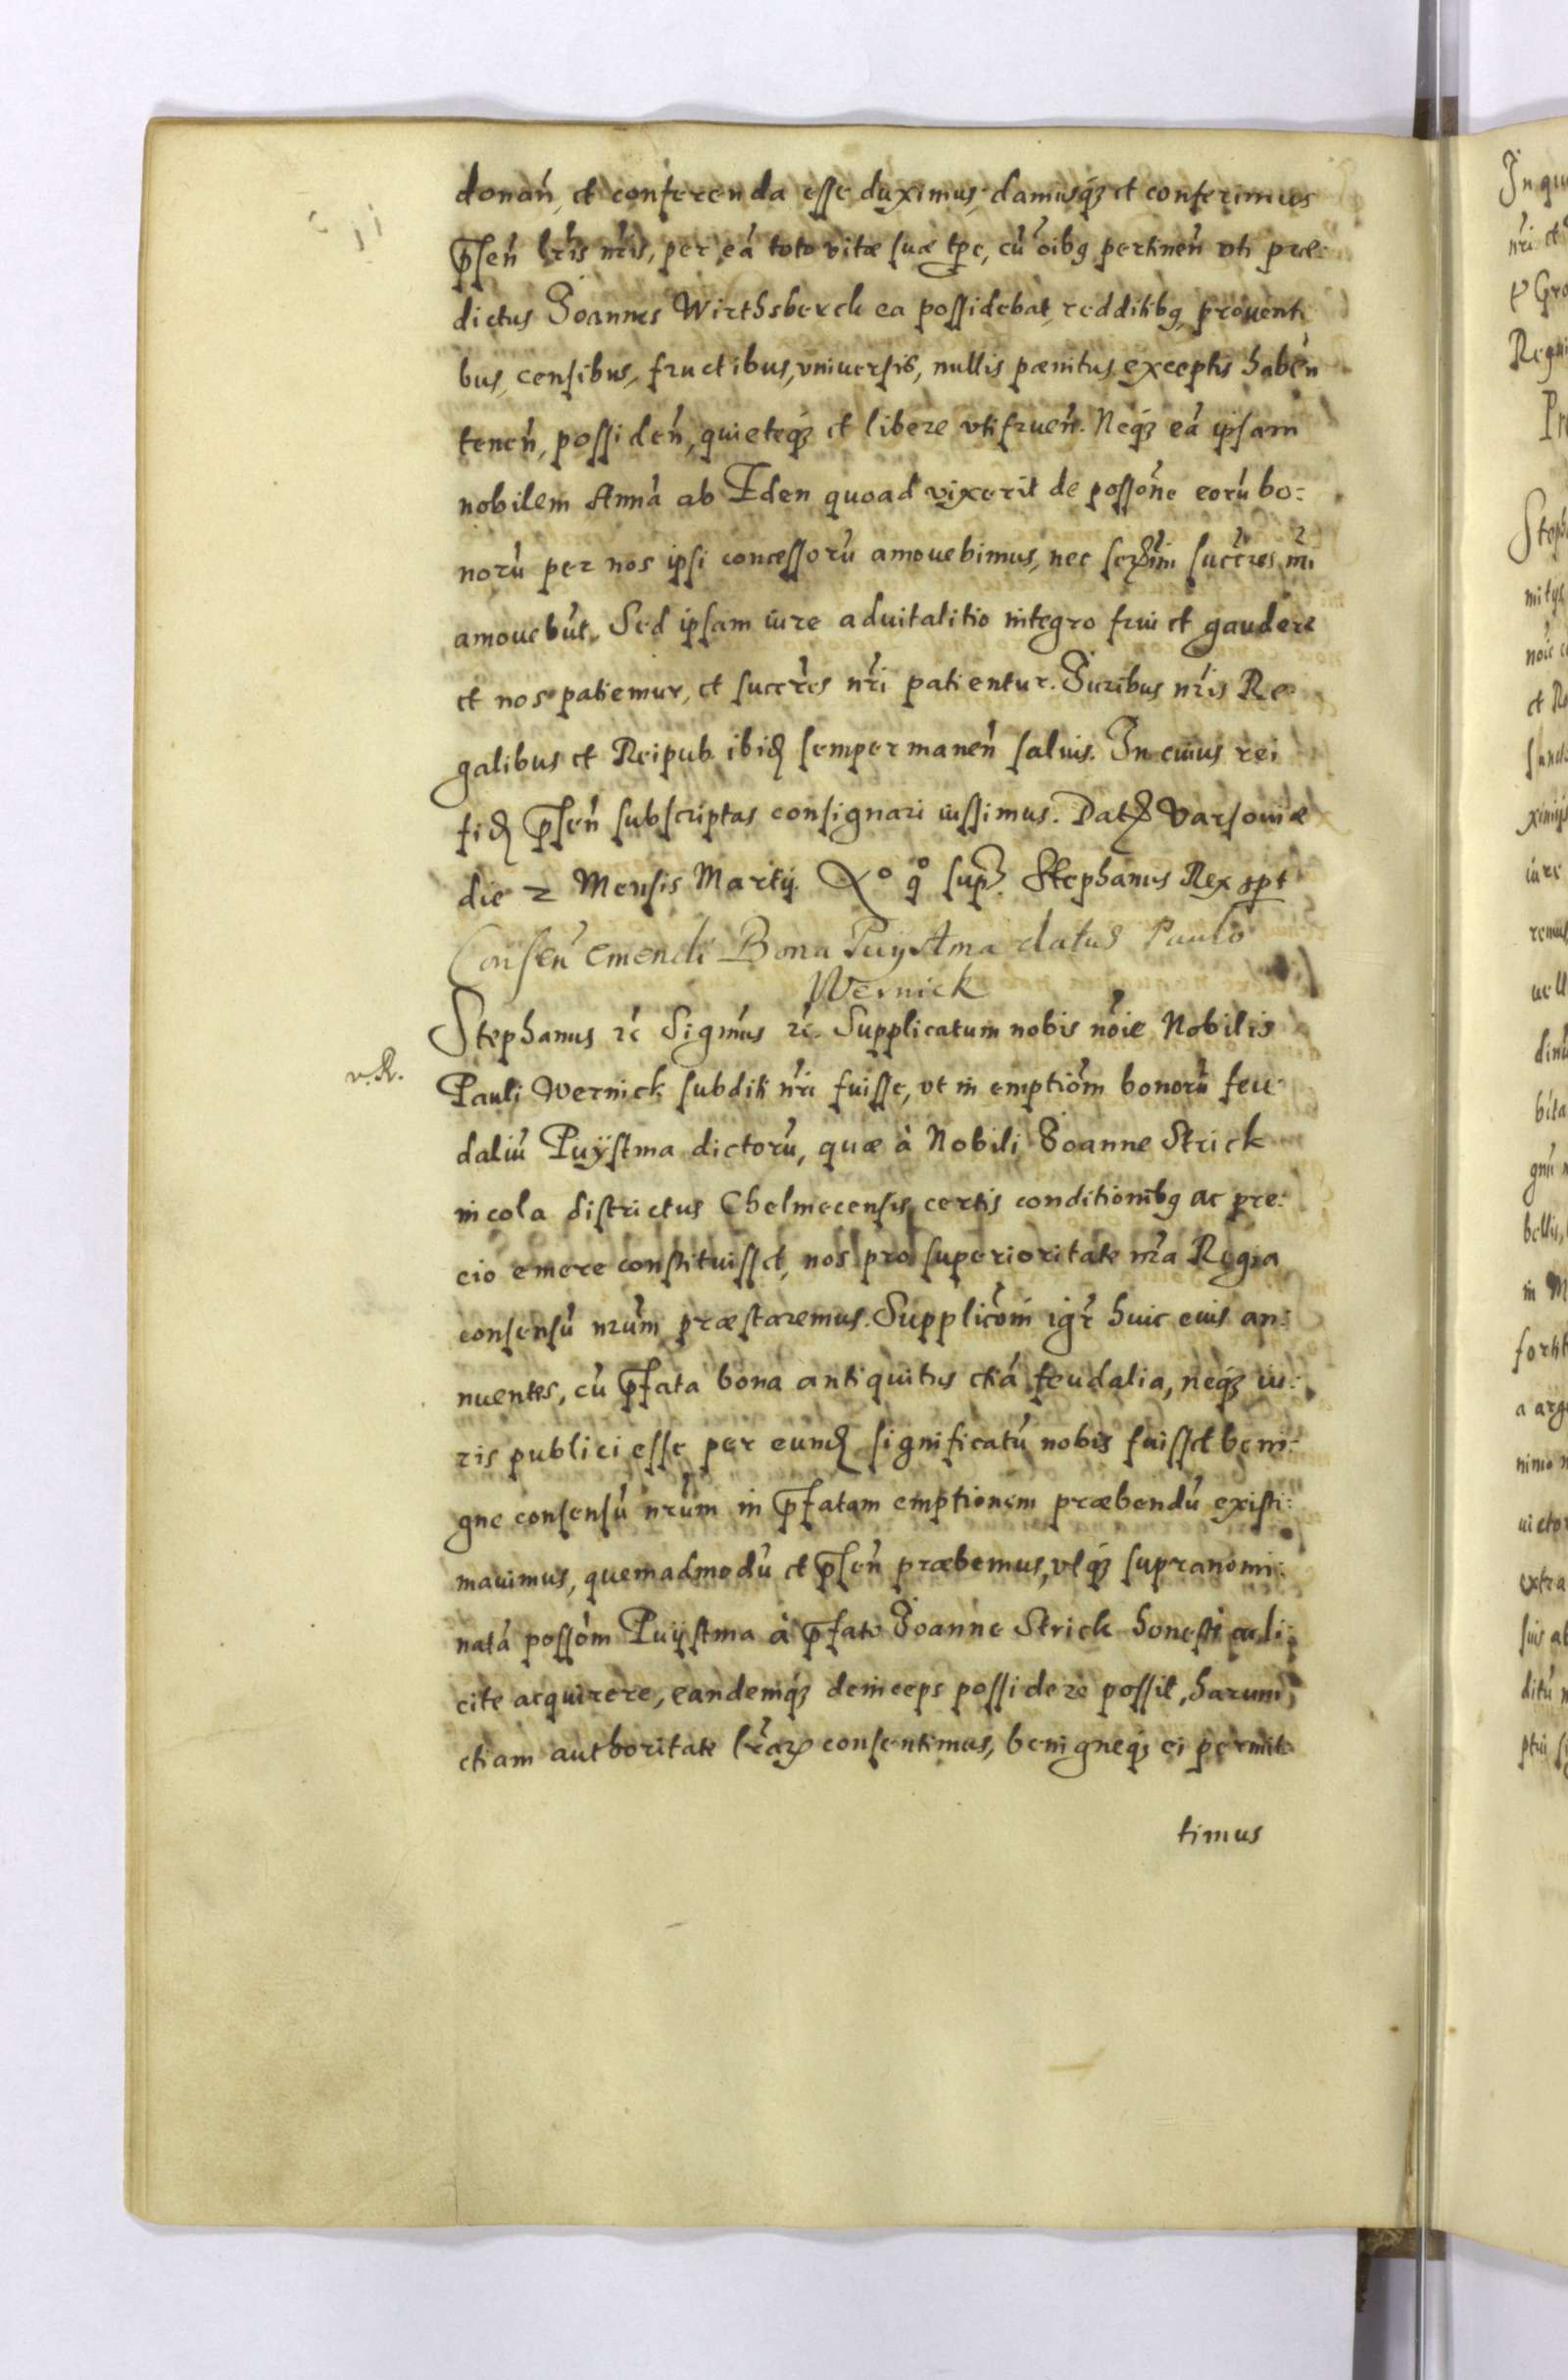 donań, et conferenda esse duximus, damusq́ꝫ et conferimus
p̄sen̄ lr̄is nr̄is, per eá toto vitæ suæ tp̄e, cū oibꝗ pertinen̄ vti præ-
dictus Joannes Wirthsberck ea possidebat, redditibꝗ, prouenti
bus, censibus, fructibus, vniuersis, nullis pænitus exceptis habēn
tenen̄, possiden̄, quieteq́ꝫ et libere vtifruen̄. Neq́ꝫ eá ipsam
nobilem Anná ab Eden quoad vixerit de possōne eorū bo:
norū per nos ipsi concessorū amouebimus, nec serm̄i succr̄es nr̄i
amouebūt. Sed ipsam iure aduitalitio integro frui et gaudere
et nos patiemur, et succr̄es nr̄i patientur. Juribus nr̄is Re-
galibus et Reipub. ibid semper manen̄ saluis. In cuius rei
fid p̄sen̄ subscriptas consignari iussimus. Datꝫ Varsouiæ
die 2 Mensis Martij. Xº qº supꝫ Stephanus Rex spt
Consen̄ emendi Bona Puystma datus Paulo
Wernick
Stephanus ꝛć Sigm̄us ꝛć. Supplicatum nobis nōie Nobilis
v. R.
Pauli Wernick subditi nr̄i fuisse, vt in emptiōm bonorū feu-
daliū Puÿstma dictorū, quæ à Nobili Joanne Strick
incola districtus Chelmecensis certis conditionibꝗ ac pre:
cio emere constituisset, nos pro superioritate nr̄a Regia
consensū nrūm præstaremus. Supplicōni igr̄ huic eius an:
nuentes, cū p̄fata bona antiquitus etiá feudalia, neq́ꝫ iu:
ris publici esse per eund significatū nobis fuisset beni:
gne consensū nrūm in p̄fatam emptionem præbendū existi:
mauimus, quemadmodū et p̄sen̄ præbemus, vtq́ꝫ supranomi:
natá possōm Puÿstma à p̄fato Joanne Strick honeste ac li:
cite acquirere, eandemq́ꝫ deinceps possidere possit, harum
etiam authoritate lr̄arꝫ consentimus, benigneq́ꝫ ei permit-
timus